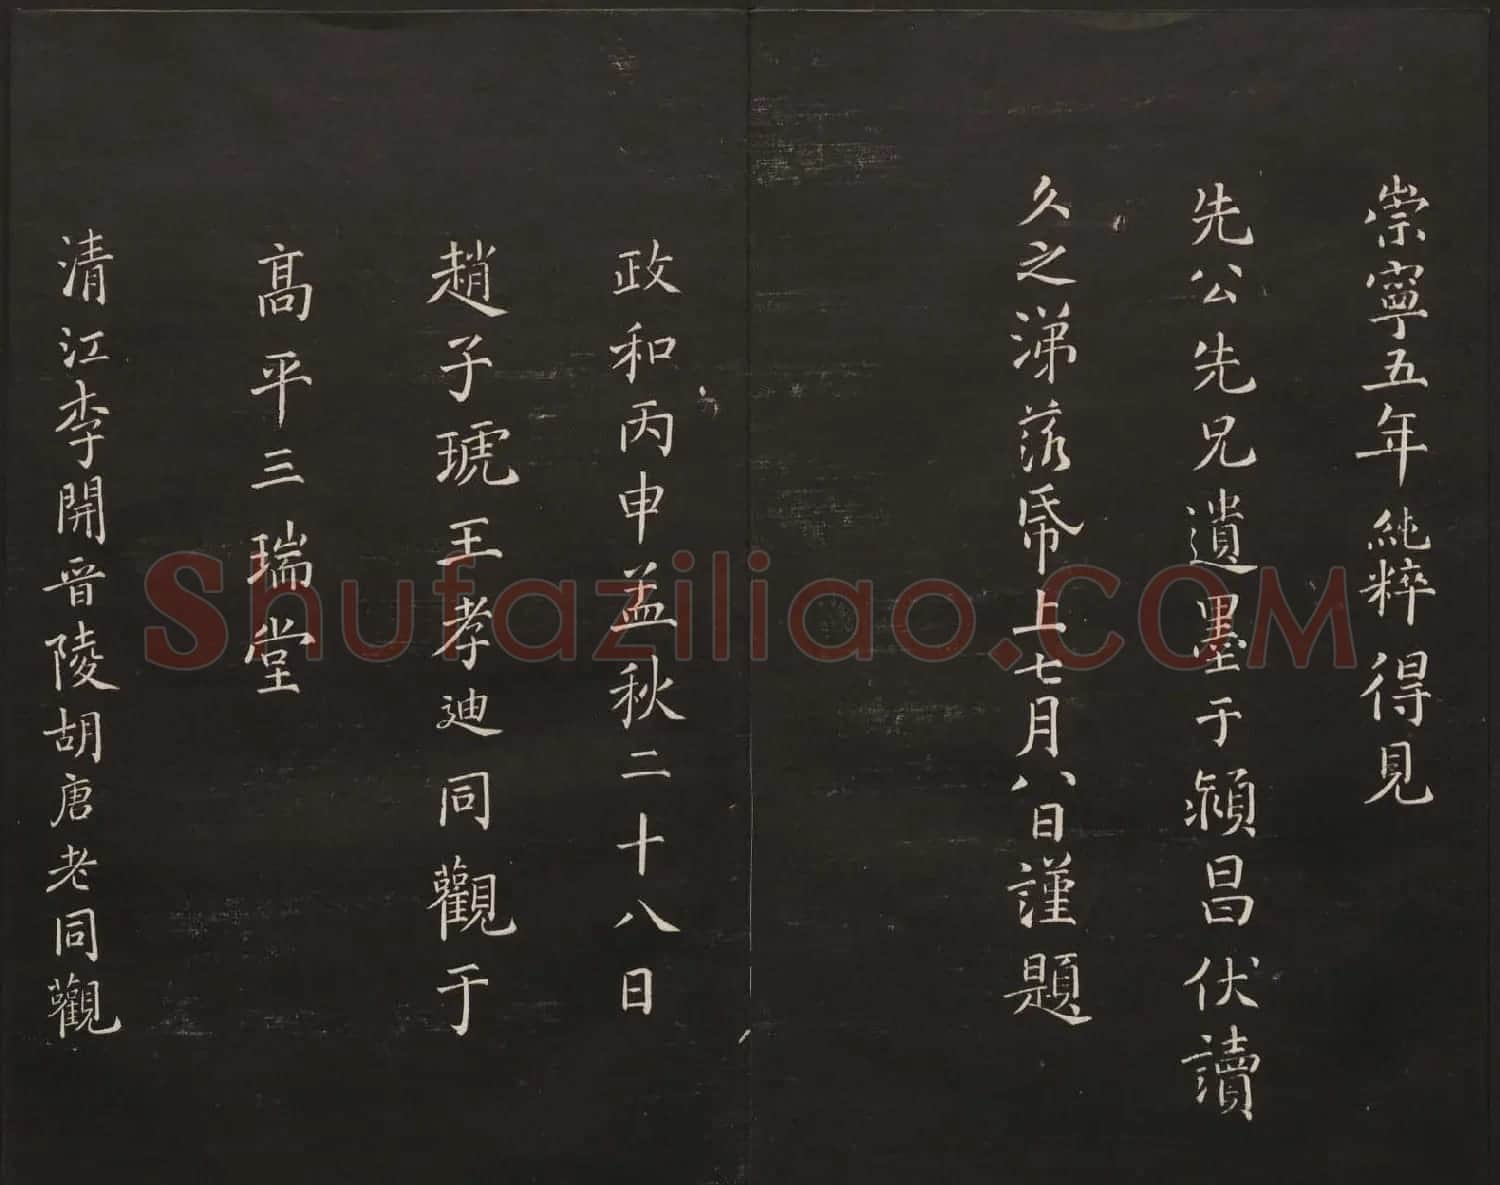 崇寧五年純粹得見
先公先兄遺墨于潁昌伏讀
久之涕落帋上七月八日謹題
政和丙申孟秋二十八日
趙子琥王孝迪同觀于
高平三瑞堂
清江李開晉陵胡唐老同觀
Shufaziliao.COM